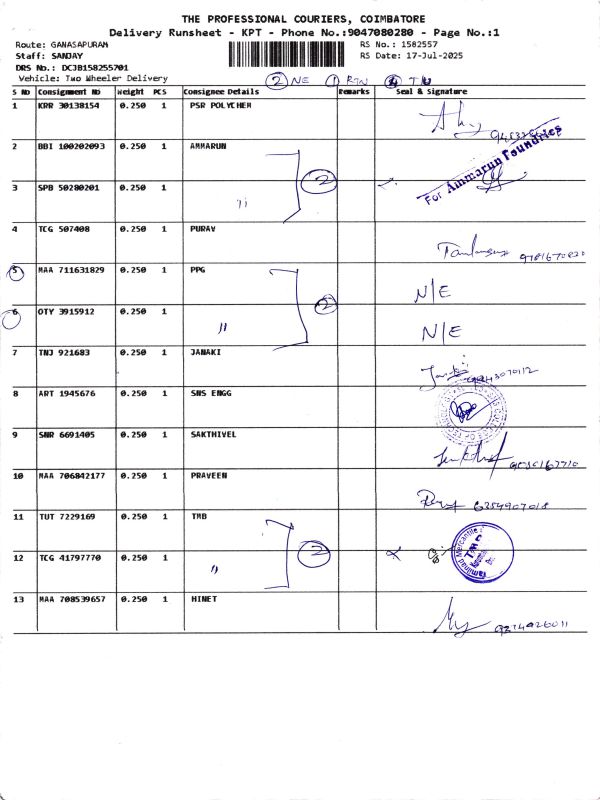 THE PROFESSIONAL COURIERS, COIMBATORE
Delivery Runsheet - KPT - Phone No.:9047080280 - Page No.:1
Route: GANASAPURAM
RS No.: 1582557
Staff: SANJAY
RS Date: 17-Jul-2025
DRS No.: DCJB158255701
Vehicle: Two Wheeler Delivery
2 NE 1 RTN
S No Consignment No Weight PCS Consignee Details Remarks Seal & Signature
1 KRR 30138154 0.250 1 PSR POLYCHEM
2 BBI 100202093 0.250 1 AMMARUN
For Ammarun Foundries
3 SPB 50280201 0.250 1 " 2
4 TCG 507408 0.250 1 PURAV
5 MAA 711631829 0.250 1 PPG N/E
6 OTY 3915912 0.250 1 " 2 N/E
7 TNJ 921683 0.250 1 JANAKI
8 ART 1945676 0.250 1 SNS ENGG
9 SNR 6691405 0.250 1 SAKTHIVEL
10 MAA 706842177 0.250 1 PRAVEEN
6254907018
11 TUT 7229169 0.250 1 TMB
Tamilnad Mercantile
12 TCG 41797770 0.250 1 " 2
13 MAA 708539657 0.250 1 HINET